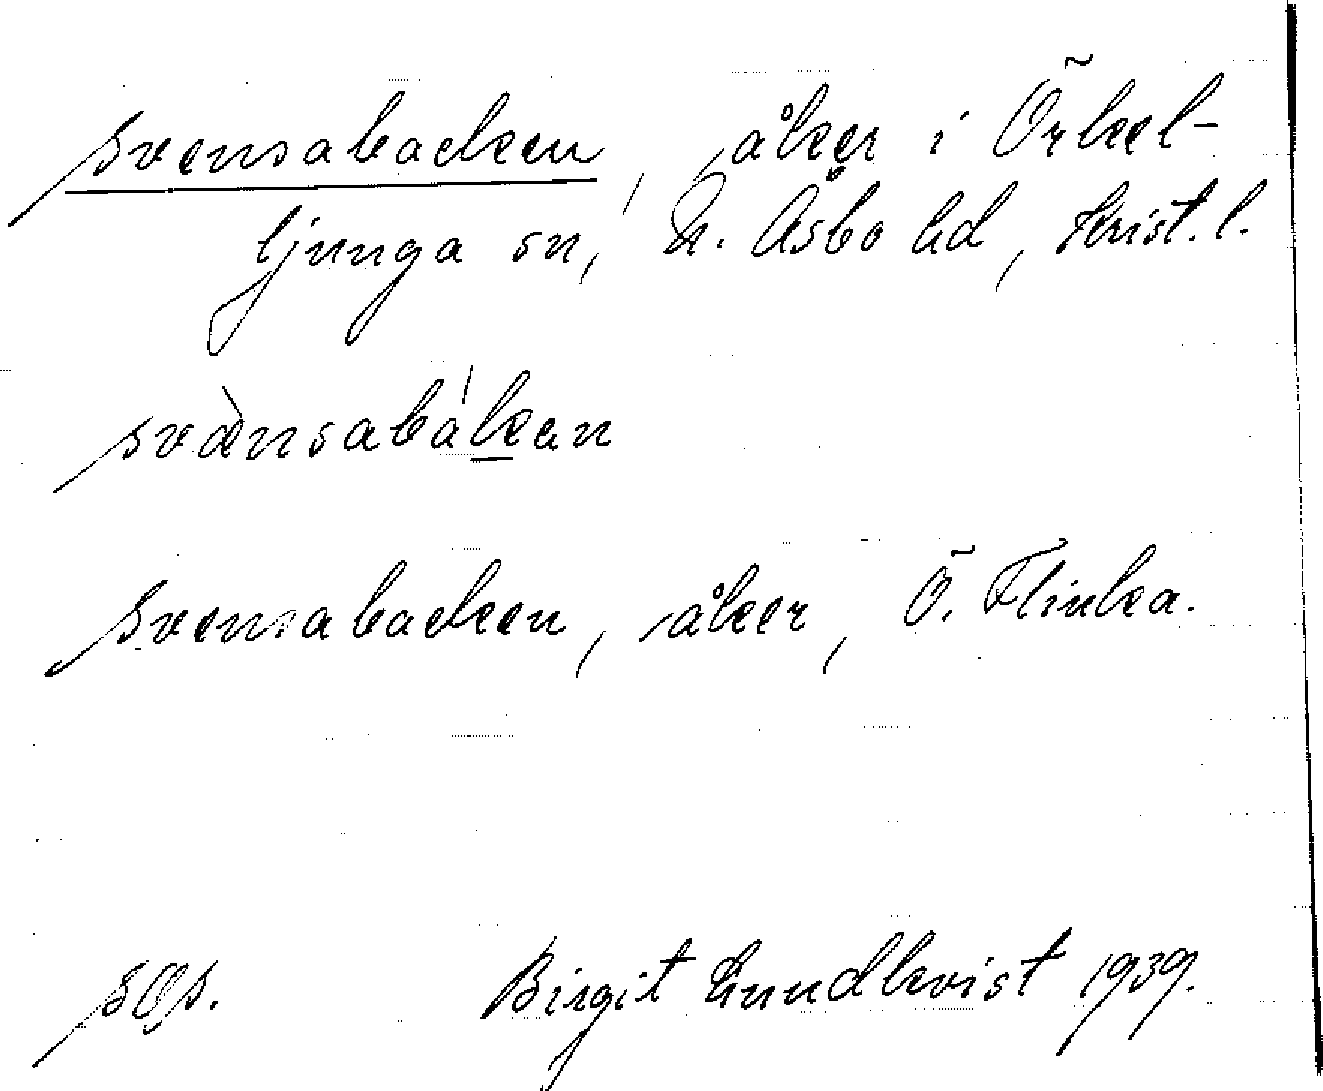 Svensabacken, åker i Örkel-
ljunga sn, N. Åsbo hd, Krist. l.
svæ̀nsabákan
Svensabacken, åker, Ö. Flinka.
Birgit Lundkvist 1939.